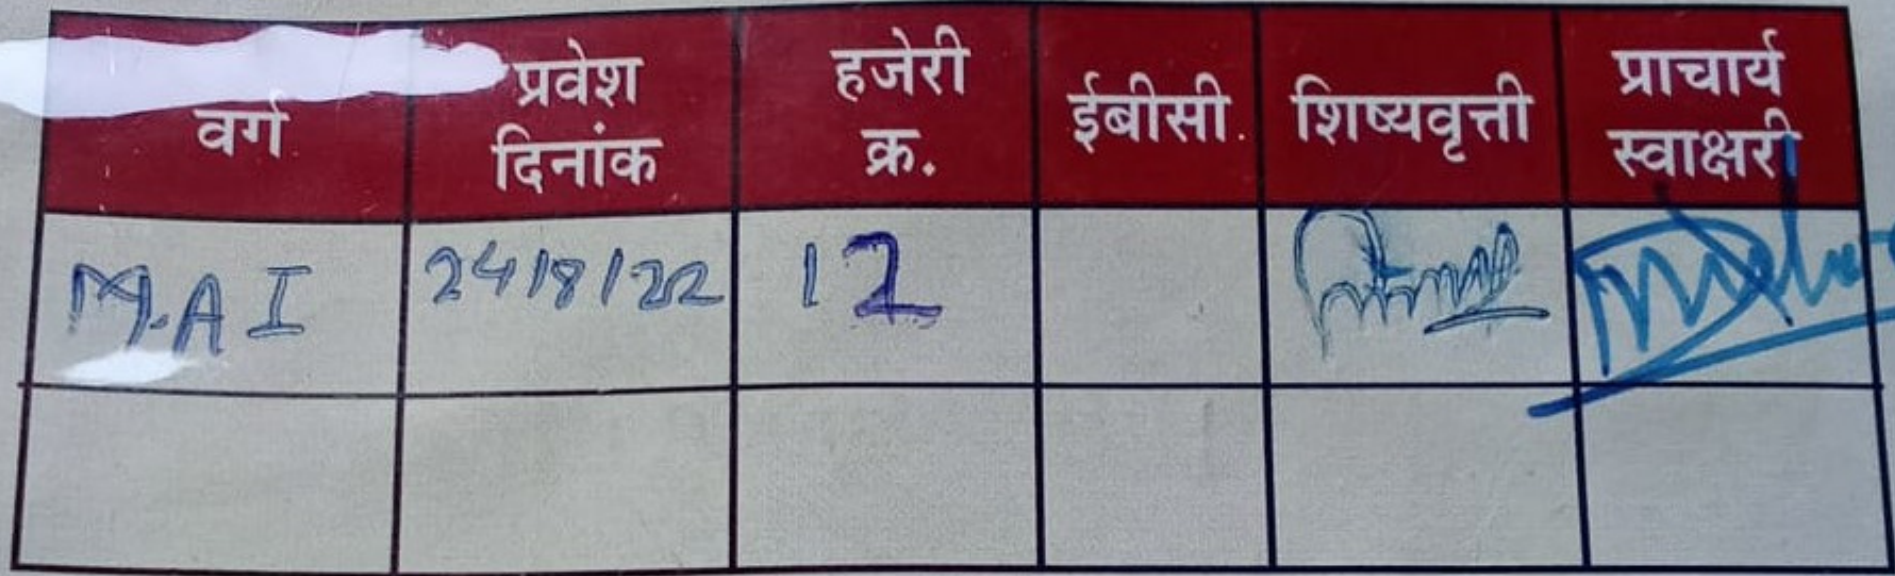 वर्ग
प्रवेश
दिनांक
हजेरी
क्र.
ईबीसी
शिष्यवृत्ती
प्राचार्य
स्वाक्षरी
M.A I
24/8/22
12